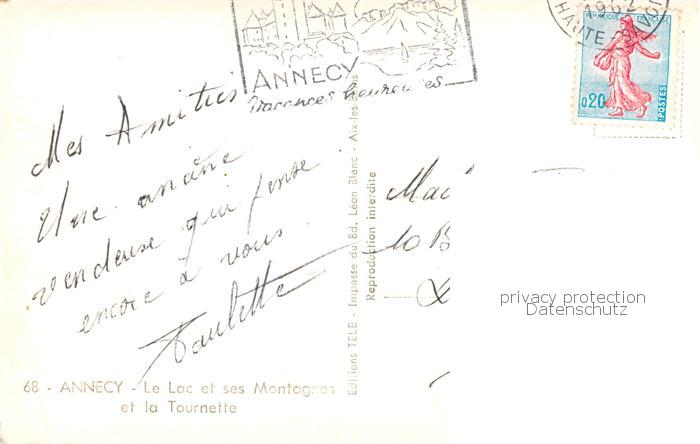 ANNECY
Vacances heureuses
1962
HAUTE-SAVOIE
REPUBLIQUE FRANÇAISE
0,20
POSTES
Mes Amitiés
Une
vendeuse qui pense
encore à vous
Paulette
68 - ANNECY - Le Lac et ses Montagnes
et la Tournette
Editions TELE - Impasse du Bd. Léon Blanc - Aix-les-Bains
Reproduction interdite
Mad
10 B
privacy protection
Datenschutz